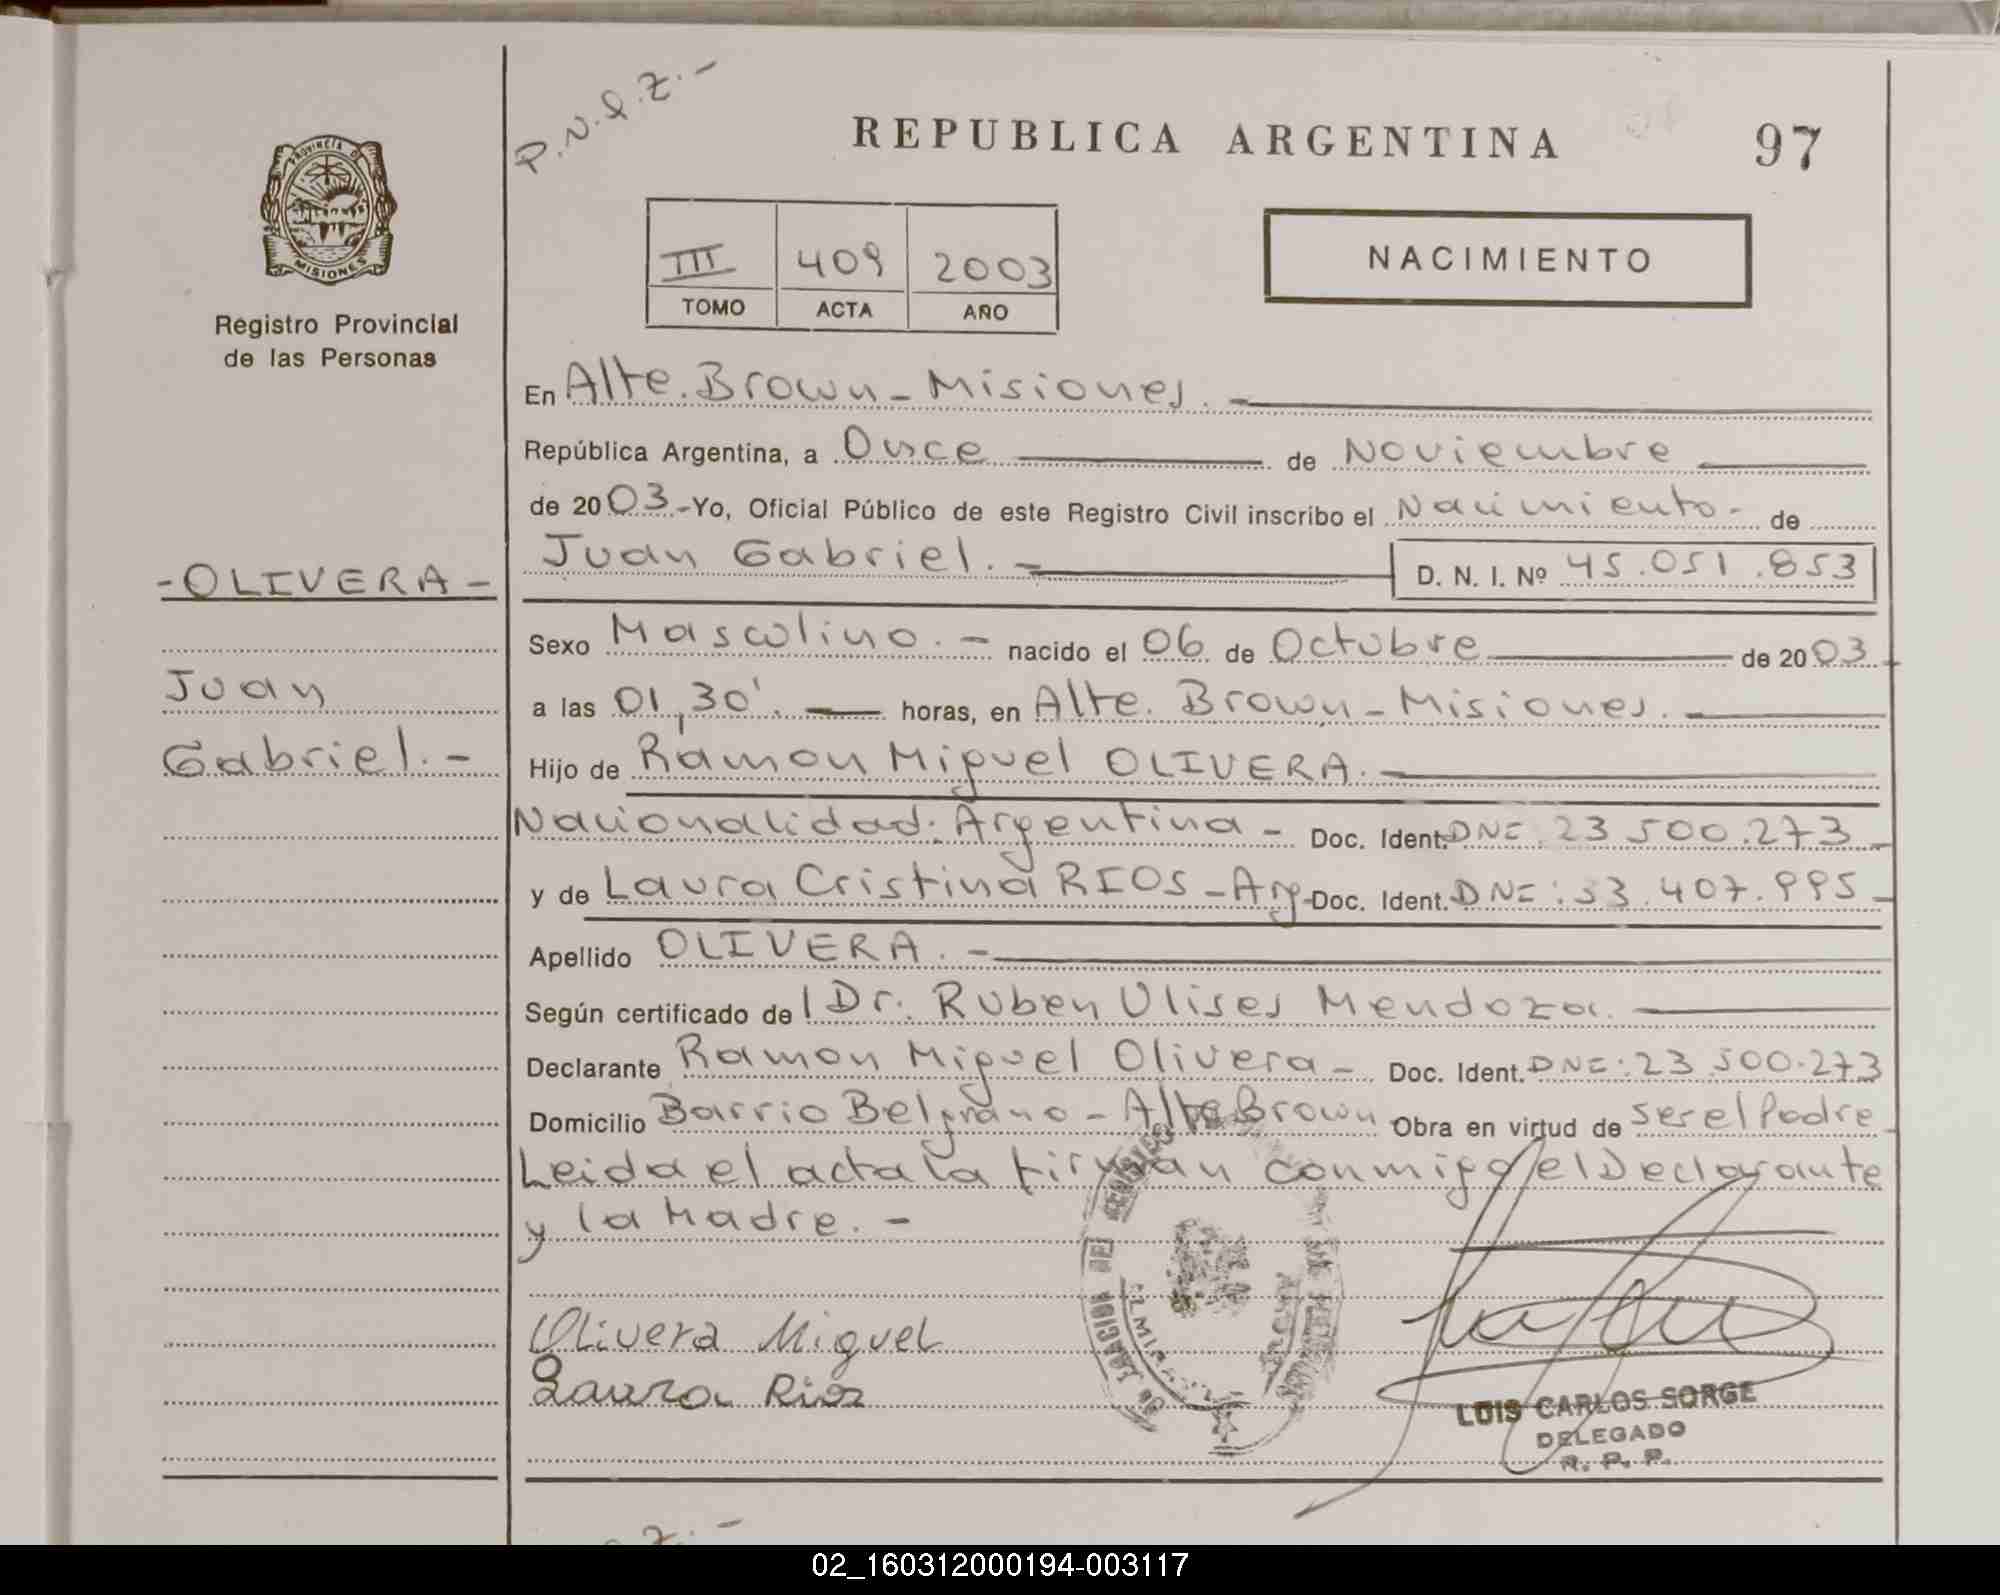 P.N.Q.Z.-
REPUBLICA ARGENTINA
97
PROVINCIA DE
MISIONES
Registro Provincial
de las Personas
III 409 2003
TOMO ACTA AÑO
NACIMIENTO
En Alte. Brown - Misiones. -
República Argentina, a Once de Noviembre
de 2003.-Yo, Oficial Público de este Registro Civil inscribo el Nacimiento - de
Juan Gabriel. - D. N. I. Nº 45.051.853
- OLIVERA -
Juan
Gabriel. -
Sexo Masculino. - nacido el 06 de Octubre de 2003
a las 01,30'. horas, en Alte. Brown - Misiones. -
Hijo de Ramon Miguel OLIVERA. -
Nacionalidad: Argentina - Doc. Ident. DNI: 23.500.273 -
y de Laura Cristina RIOS - Arg- Doc. Ident. DNI: 33.407.995 -
Apellido OLIVERA. -
Según certificado de Dr. Ruben Ulises Mendoza.
Declarante Ramon Miguel Olivera - Doc. Ident. DNI: 23.500.273
Domicilio Barrio Belgrano - Alte Brown Obra en virtud de ser el Padre
Leida el acta la firman conmigo el Declarante
y la Madre. -
Olivera Miguel
Laura Rios
LUIS CARLOS SORGE
DELEGADO
R. P. P.
Z. -
02_160312000194-003117